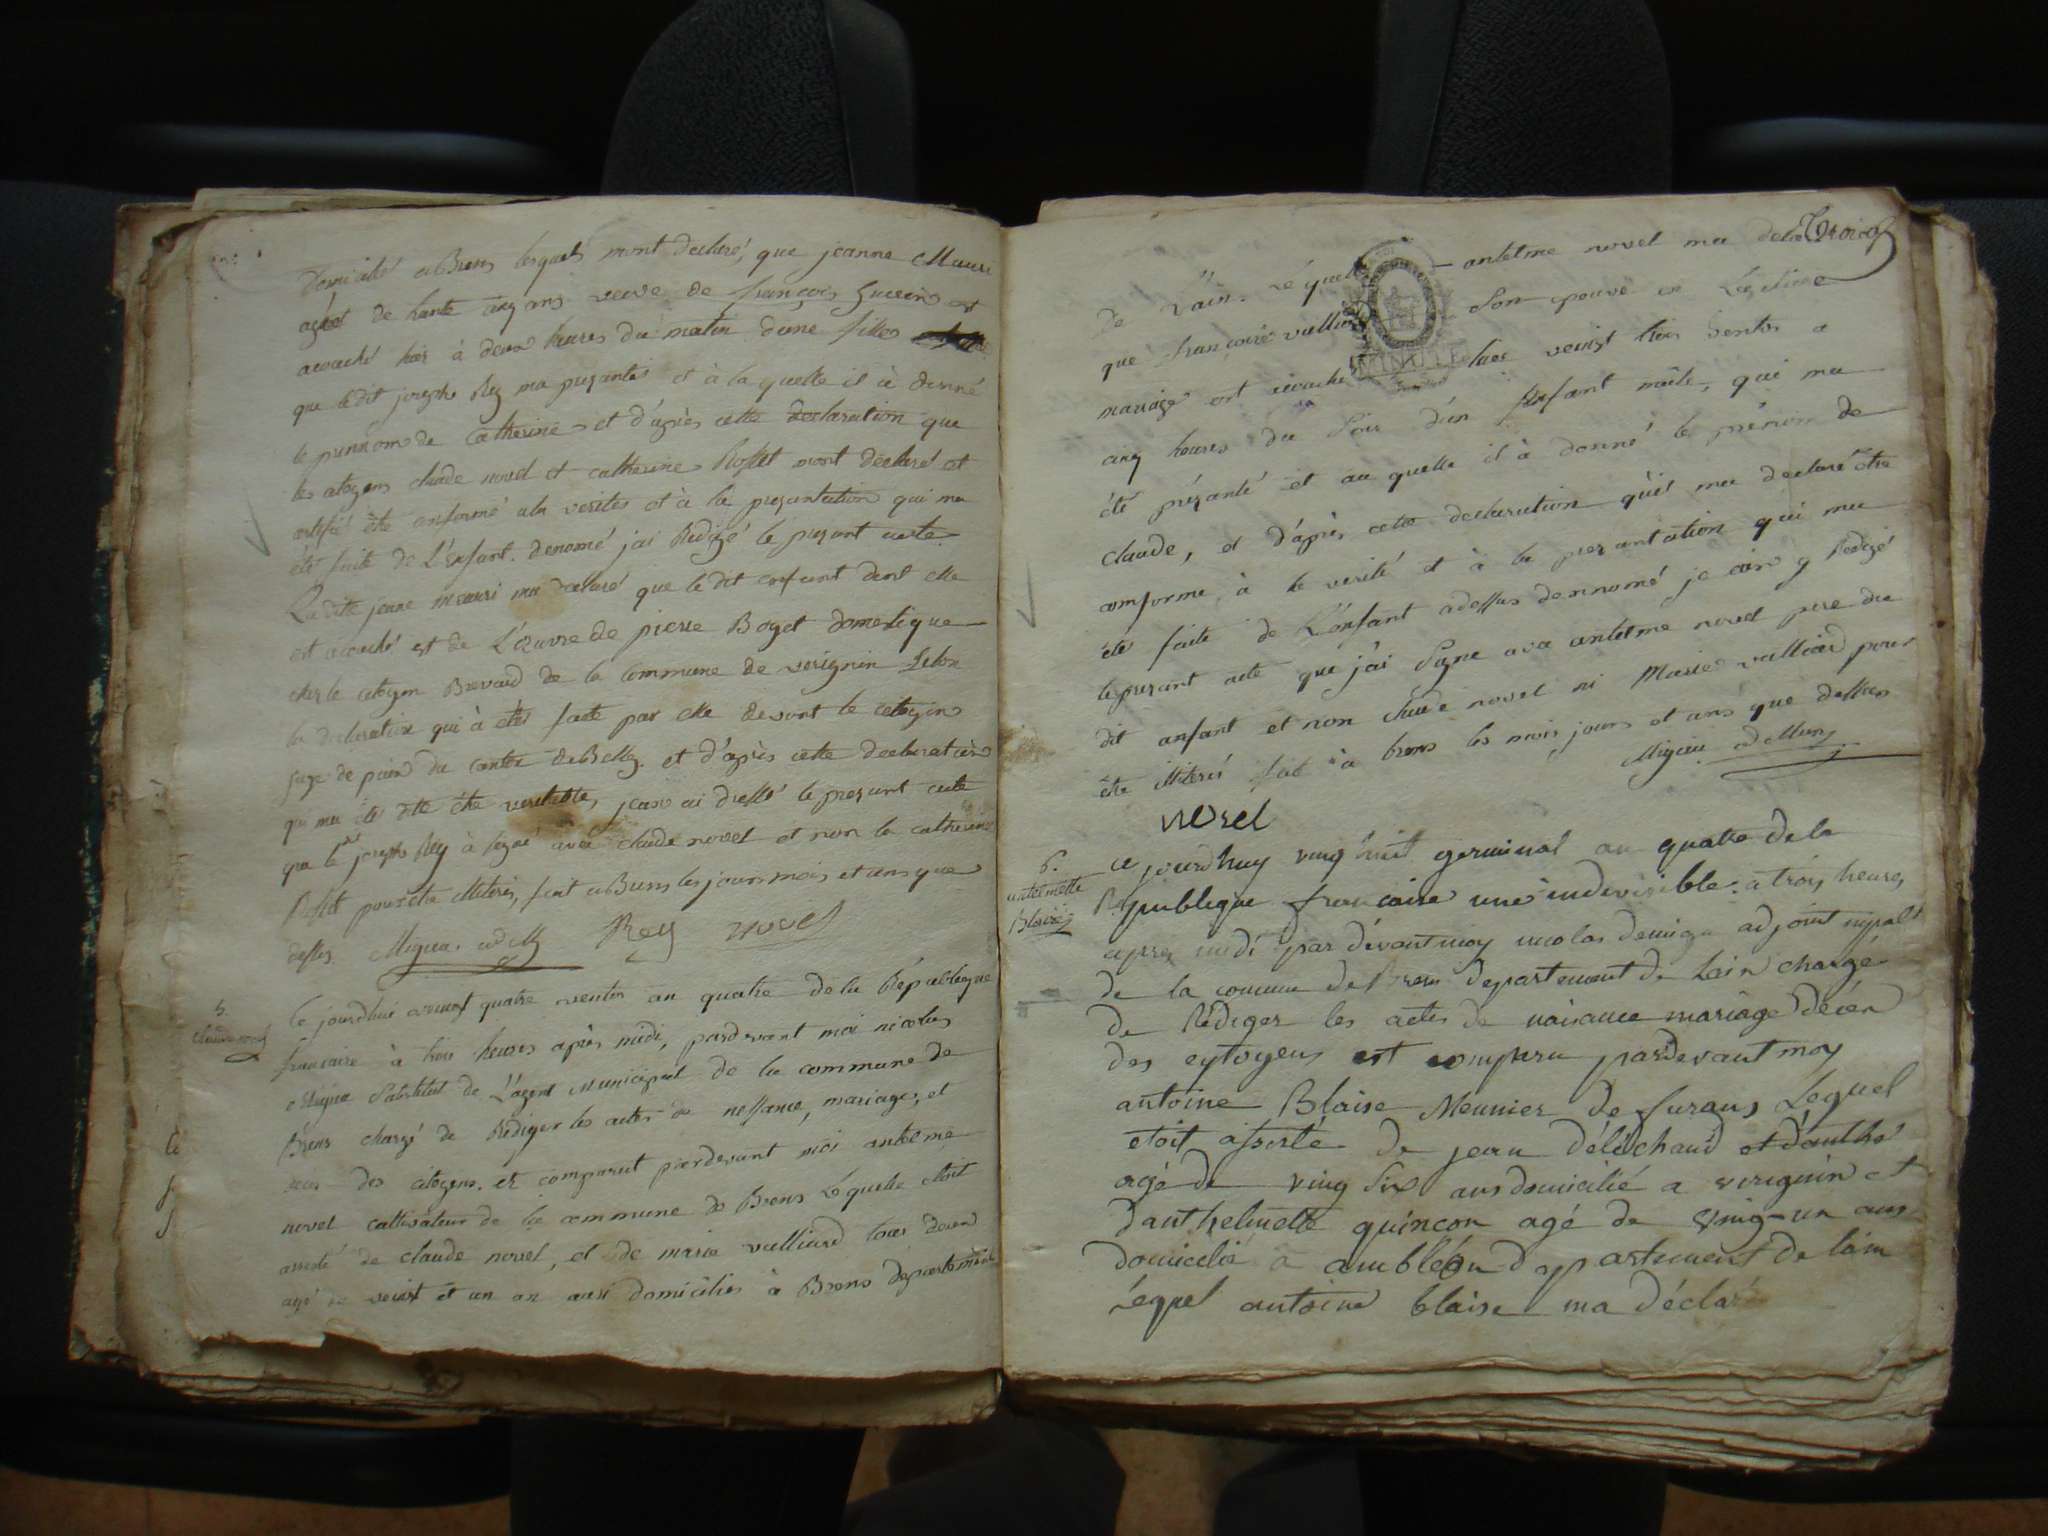 Domicilié a Brens lesquels mont declaré, que jeanne Mauri
agée de trante cinq ans veuve de françois Guerin est
acouché hier à deux heures du matin dune fille
que le dit joseph Rey ma presantés et à la quelle il à donné
le prennom de Catherine et d'après cette declaration que
les citoyens claude novel et catherine Rosset mont déclaré et
certifié être conforme ala verités et à la presantation qui ma
été faite de L'Enfant. denomé jai Redigé le presant acte.
La dite jeane mauri ma declaré que le dit enfant dont elle
est acouché est de L'œuvre de pierre Boget domestique
ches le citoyen Brevard de la commune de verignin selon
la declaration qui à étés faite par elle devant le citoyin
juge de paix du canton de Belley. et d'après cette declaration
qui ma été dite être veritable, jean ai dressé le presant acte
que le dit joseph Rey à signé avec claude novel et non la catherine
Rosset pour être illiterés, fait a Brens les jours mois et ans que
dessus. Migieu. adm Rey novel
5.
claude novel
Ce jourdhui veingt quatre ventos an quatre de la Republique
francaise à trois heures après midi, pardevant moi nicolas
Migieu Substitut de L'agent Municipal de la commune de
Brens chargé de Rediger les actes de nessance, mariages, et
deces des citoyens. est comparut pardevant moi antelme
novel cultivateur de la commune de Brens Léquelle étoit
assisté de claude novel, et de marie valliard tous deux
agé de veint et un an ausi domiciliés à Brens departement
Troix
de L'ain. Léquelle antelme novel ma declaré
que françoise valliard Son epouse en Légitime
mariage est acouché hier veint trois ventos a
cinq heures du Soir d'un Enfant mâle, qui ma
été présanté et au quelle il à donné le prénom de
claude, et d'àprès cette declaration qu'il ma declaré être
comforme à la verité et à la presantation qui ma
été faite de L'enfant adessus dennomé je ain y Redigé
le presant acte que j'ai Signe avec antelme novel pere du
dit anfant et non claude novel ni Marie valliard pour
être illiterés fait à brens les mois jours et ans que dessus
Migieu adMun
novel
6.
antelmette
Blaise
ce jourdhuy ving huit germinal an quatre de la
Republique francaise une indivisible. a trois heures
apres midi par devant moy nicolas demigieu adjoint mpal
de la comune de Brens departement de Lain chargé
de Rédiger les actes de naisance mariage décen
des cytoyens est comparu pardevant moy
antoine Blaise Meunier de furans Lequel
etoit assisté de jean délèchaud et danthé
agé de ving Six ans domicilié a virignin et
danthelmette quincon agé de ving-un ans
domicilié a ambléon departement de lain
Léquel antoine blaise ma déclaré